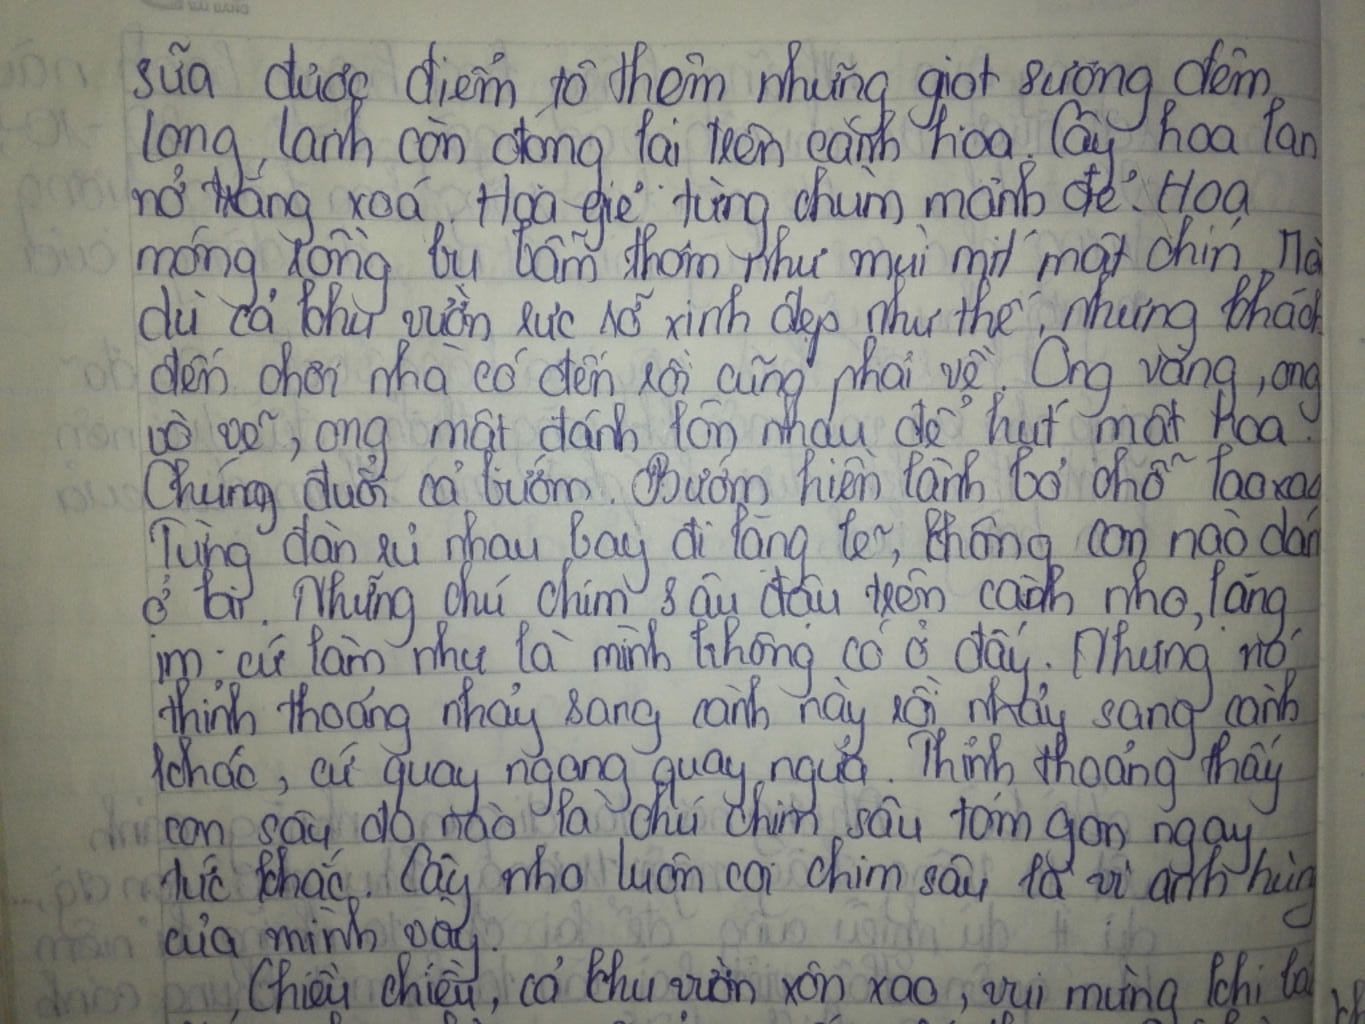 sữa được điểm tô thêm những giọt sương đêm
long lanh còn đóng lại trên cánh hoa. Cây hoa lan
nở trắng xoá. Hoa giẻ từng chùm mảnh dẻ. Hoa
móng rồng bụ bẫm thơm như mùi mít mật chín. Mà
dù cả khu vườn rực rỡ xinh đẹp như thế, nhưng khách
đến chơi nhà có đến rồi cũng phải về. Ong vàng, ong
vò vẽ, ong mật đánh lộn nhau để hút mật hoa.
Chúng đuổi cả bướm. Bướm hiền lành bỏ chỗ lao xao
Từng đàn rủ nhau bay đi lặng lẽ, không con nào dám
ở lại. Những chú chim sâu đậu trên cành nho, lặng
im cứ làm như là mình không có ở đấy. Nhưng nó
thỉnh thoảng nhảy sang cành này rồi nhảy sang cành
khác, cứ quay ngang quay ngửa. Thỉnh thoảng thấy
con sâu đo nào là chú chim sâu tóm gọn ngay
tức khắc. Cây nho luôn coi chim sâu là vị anh hùng
của mình vậy.
Chiều chiều, cả khu vườn xôn xao, vui mừng khi lại